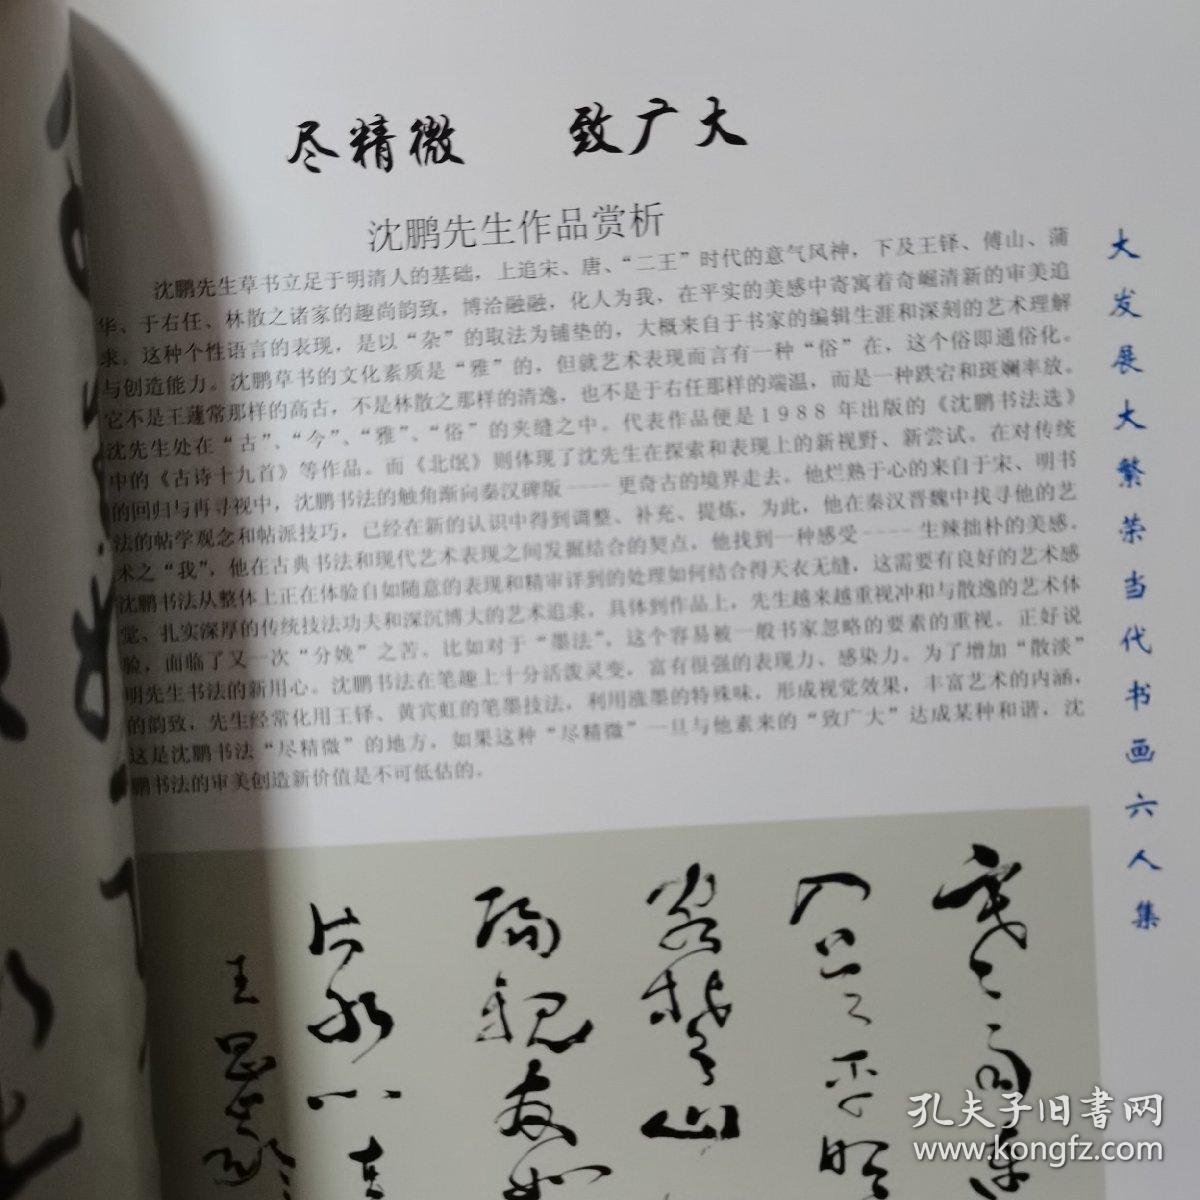 尽精微 致广大
沈鹏先生作品赏析
沈鹏先生草书立足于明清人的基础，上追宋、唐、“二王”时代的意气风神，下及王铎、傅山、蒲
华、于右任、林散之诸家的趣尚韵致，博洽融融，化人为我，在平实的美感中寄寓着奇崛清新的审美追
求。这种个性语言的表现，是以“杂”的取法为铺垫的，大概来自于书家的编辑生涯和深刻的艺术理解
与创造能力。沈鹏草书的文化素质是“雅”的，但就艺术表现而言有一种“俗”在，这个俗即通俗化。
它不是王蘧常那样的高古，不是林散之那样的清逸，也不是于右任那样的端温，而是一种跌宕和斑斓率放。
沈先生处在“古”、“今”、“雅”、“俗”的夹缝之中。代表作品便是1988年出版的《沈鹏书法选》
中的《古诗十九首》等作品。而《北氓》则体现了沈先生在探索和表现上的新视野、新尝试。在对传统
的回归与再寻视中，沈鹏书法的触角渐向秦汉碑版——更奇古的境界走去。他烂熟于心的来自于宋、明书
法的帖学观念和帖派技巧，已经在新的认识中得到调整、补充、提炼，为此，他在秦汉晋魏中找寻他的艺
术之“我”，他在古典书法和现代艺术表现之间发掘结合的契点，他找到一种感受——生辣拙朴的美感。
沈鹏书法从整体上正在体验自如随意的表现和精审详到的处理如何结合得天衣无缝，这需要有良好的艺术感
觉、扎实深厚的传统技法功夫和深沉博大的艺术追求，具体到作品上，先生越来越重视冲和与散逸的艺术体
验，面临了又一次“分娩”之苦。比如对于“墨法”，这个容易被一般书家忽略的要素的重视。正好说
明先生书法的新用心。沈鹏书法在笔趣上十分活泼灵变，富有很强的表现力、感染力。为了增加“散淡”
的韵致，先生经常化用王铎、黄宾虹的笔墨技法，利用涨墨的特殊味，形成视觉效果，丰富艺术的内涵，
这是沈鹏书法“尽精微”的地方，如果这种“尽精微”一旦与他素来的“致广大”达成某种和谐，沈
鹏书法的审美创造新价值是不可低估的。
大发展大繁荣当代书画六人集
寒雨连
入吴平明
客楚山
洛阳亲友如
片冰心在
王昌龄
孔夫子旧书网
www.kongfz.com